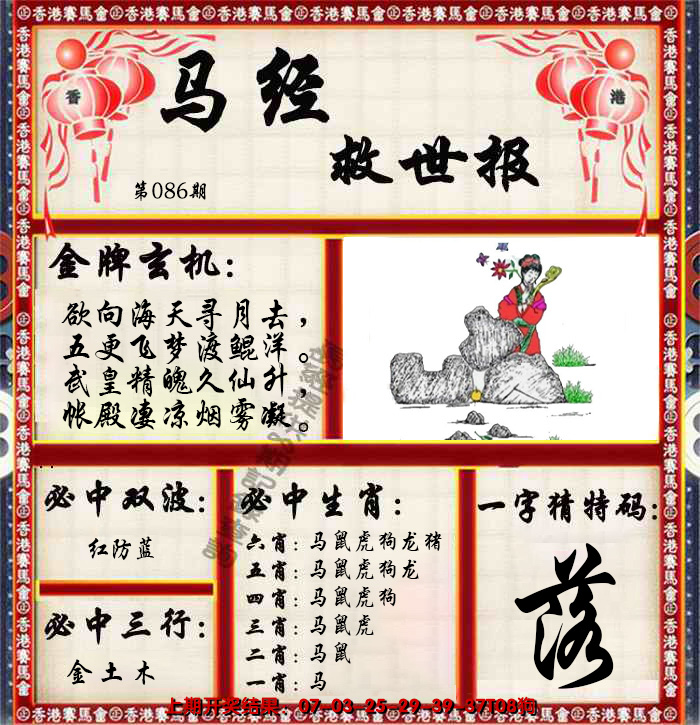 香港賽馬會 香港賽馬會 香港賽馬會 香港賽馬會 香港賽馬會 香港賽馬會
香
港
马经
救世报
第086期
金牌玄机：
欲向海天寻月去，
五更飞梦渡鲲洋。
武皇精魄久仙升，
帐殿凄凉烟雾凝。
必中双波：
红防蓝
必中三行：
金土木
必中生肖：
六肖：马鼠虎狗龙猪
五肖：马鼠虎狗龙
四肖：马鼠虎狗
三肖：马鼠虎
二肖：马鼠
一肖：马
一字猜特码：
落
上期开奖结果：07-03-25-29-39-37T08狗